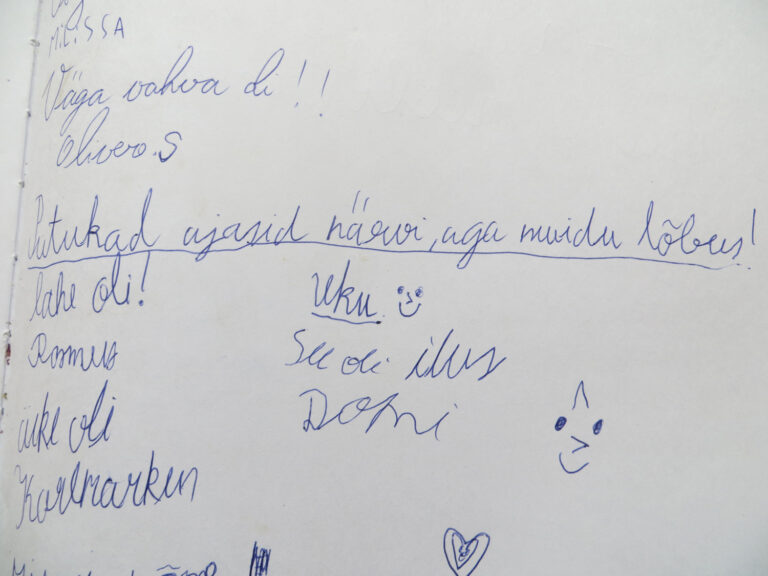 MELISSA
Väga vahva oli!!
Olivero.S
Putukad ajasid närvi, aga muidu lõbus!
lahe oli!
Rasmus
äike oli
Karlmarken
Uku
See oli ilus
Domi